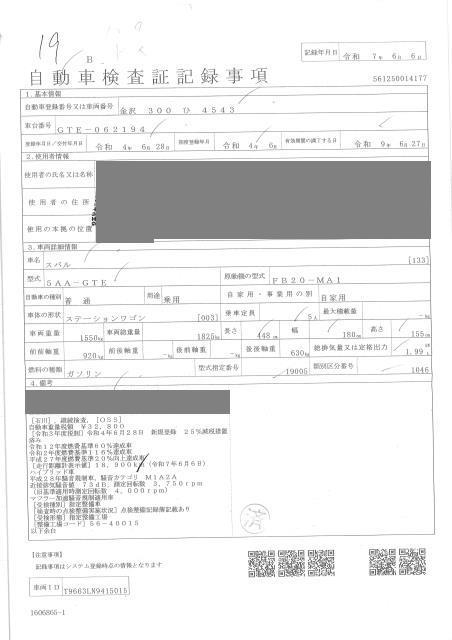 19
B
記録年月日 令和 7年 6月 6日
自動車検査証記録事項
561250014177
1.基本情報
自動車登録番号又は車両番号 金沢 300 ひ 4543
車台番号 GTE-062194
登録年月日/交付年月日 令和 4年 6月 28日 初度登録年月 令和 4年 6月 有効期間の満了する日 令和 9年 6月 27日
2.使用者情報
使用者の氏名又は名称
使用者の住所
使用の本拠の位置
3.車両詳細情報
車名 スバル [133]
型式 5AA-GTE 原動機の型式 FB20-MA1
自動車の種別 普通 用途 乗用 自家用・事業用の別 自家用
車体の形状 ステーションワゴン [003] 乗車定員 5人 最大積載量 -kg
車両重量 1550kg 車両総重量 1825kg 長さ 448cm 幅 180cm 高さ 155cm
前前軸重 920kg 前後軸重 -kg 後前軸重 -kg 後後軸重 630kg 総排気量又は定格出力 1.99L
燃料の種類 ガソリン 型式指定番号 19005 類別区分番号 1046
4.備考
[石川],継続検査,[OSS]
自動車重量税額 ¥32,800
[令和3年度税制]令和4年6月28日 新規登録 25%減税措置
済み
令和12年度燃費基準60%達成車
令和2年度燃費基準116%達成車
平成27年度燃費基準20%向上達成車
[走行距離計表示値]18,900km(令和7年6月6日)
ハイブリッド車
平成28年騒音規制車,騒音カテゴリ M1A2A
近接排気騒音値 73dB,測定回転数 3,750rpm
(旧基準適用時測定回転数 4,000rpm)
マフラー加速騒音規制適用車
[受検種別]指定整備車
[検査時の点検整備実施状況]点検整備記録簿記載あり
[受検形態]指定整備工場
[整備工場コード]56-40015
以下余白
済
[注意事項]
記録事項はシステム登録時点の情報となります
車両ID T9663LN9415015
1606865-1